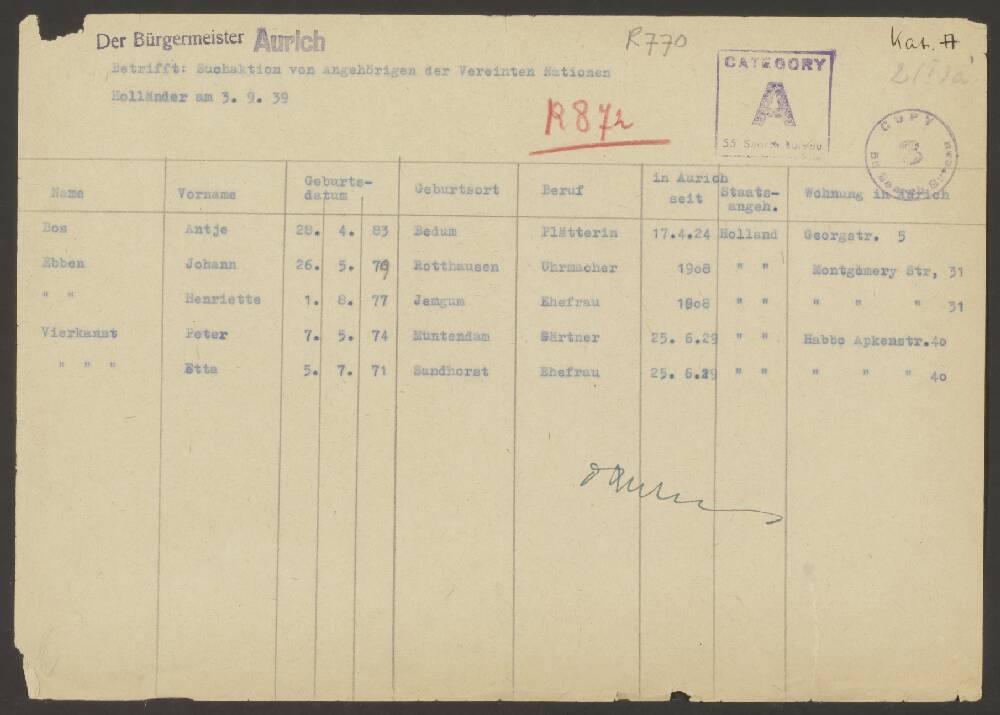 Der Bürgermeister Aurich
R770
Kat. A
Betrifft: Suchaktion von Angehörigen der Vereinten Nationen
Holländer am 3. 9. 39
R872
CATEGORY
A
COPY
3
Name Vorname Geburts-datum Geburtsort Beruf in Aurich seit Staats-angeh. Wohnung in Aurich
Bos Antje 28. 4. 83 Bedum Plätterin 17.4.24 Holland Georgstr. 5
Ebben Johann 26. 5. 79 Rotthausen Uhrmacher 1908 " " Montgomery Str, 31
" " Henriette 1. 8. 77 Jemgum Ehefrau 1908 " " " " " 31
Vierkannt Peter 7. 5. 74 Muntendam Gärtner 25. 6.29 " " Habbo Apkenstr.40
" " " Etta 5. 7. 71 Sandhorst Ehefrau 25. 6.29 " " " " " 40